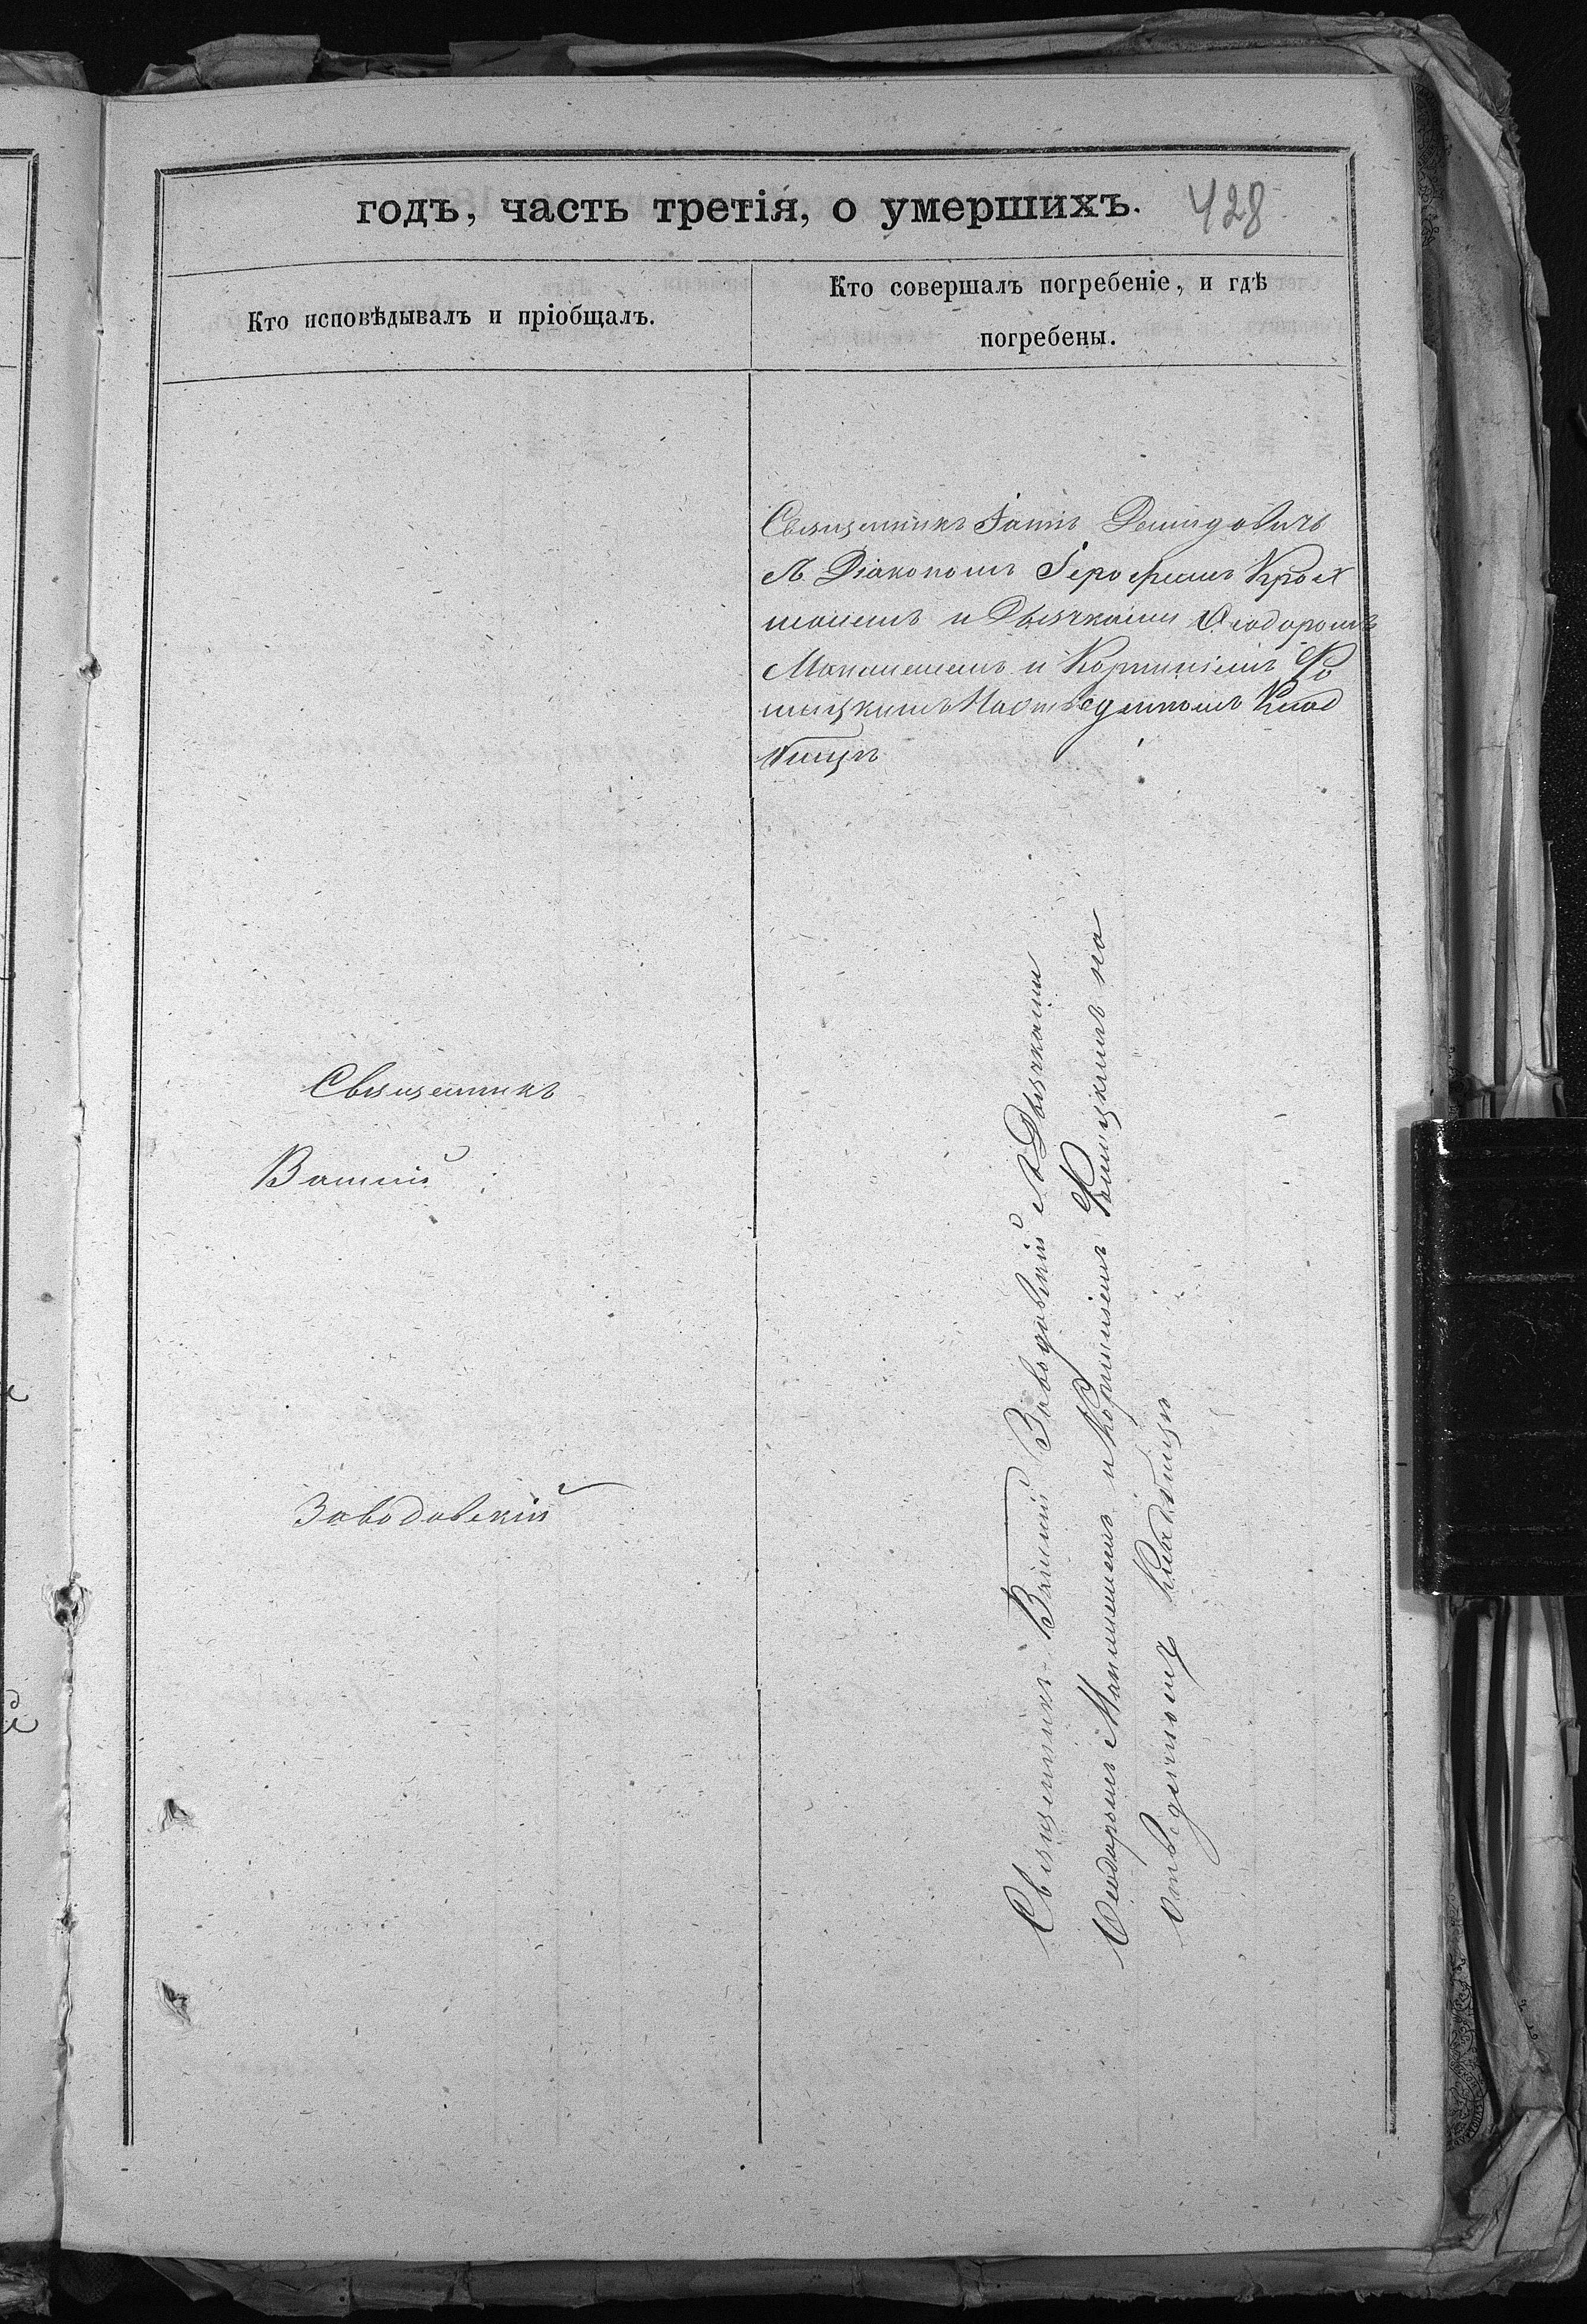 годъ, часть третія, о умершихъ. 428
Кто исповѣдывалъ и пріобщалъ.
Кто совершалъ погребеніе, и гдѣ
погребены.
Священникъ Іаковъ Демидовичъ
съ Діакономъ Іерофеемъ
и Дьячками Ѳеодоромъ
и Корниліемъ Фо
мицкимъ На отведенномъ Клад
бищѣ
Священникъ
Василій
Заводовскій
Священникъ Василій Заводовскій съ Дьячками
Ѳеодоромъ и Корниліемъ Фомицкимъ на
отведенномъ Кладбищѣ